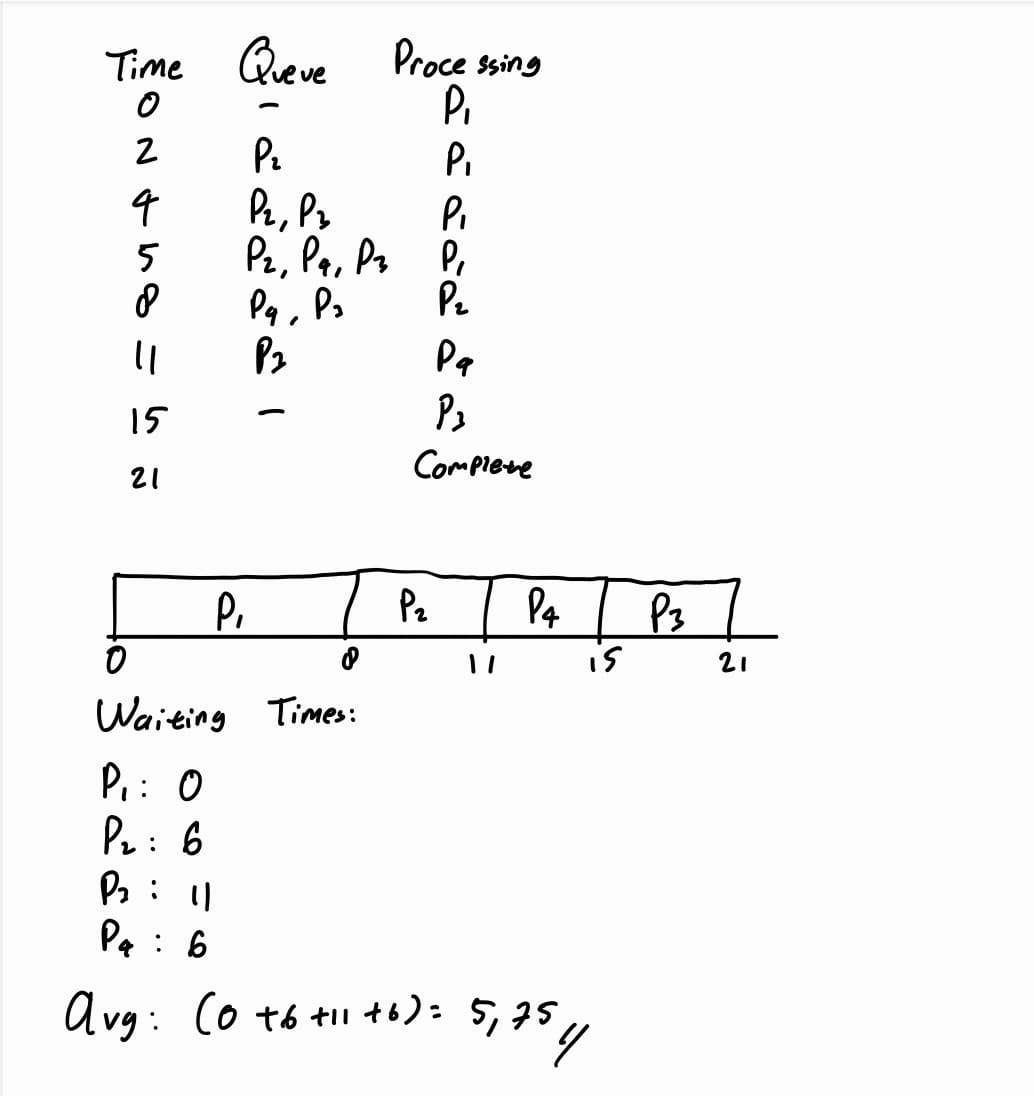 Time Queue Processing
0 - P1
2 P2 P1
4 P2, P3 P1
5 P2, P4, P3 P1
8 P4, P3 P2
11 P3 P4
15 - P3
21 Complete
P1 P2 P4 P3
0 8 11 15 21
Waiting Times:
P1: 0
P2: 6
P3: 11
P4: 6
avg: (0 +6 +11 +6) = 5,75 //